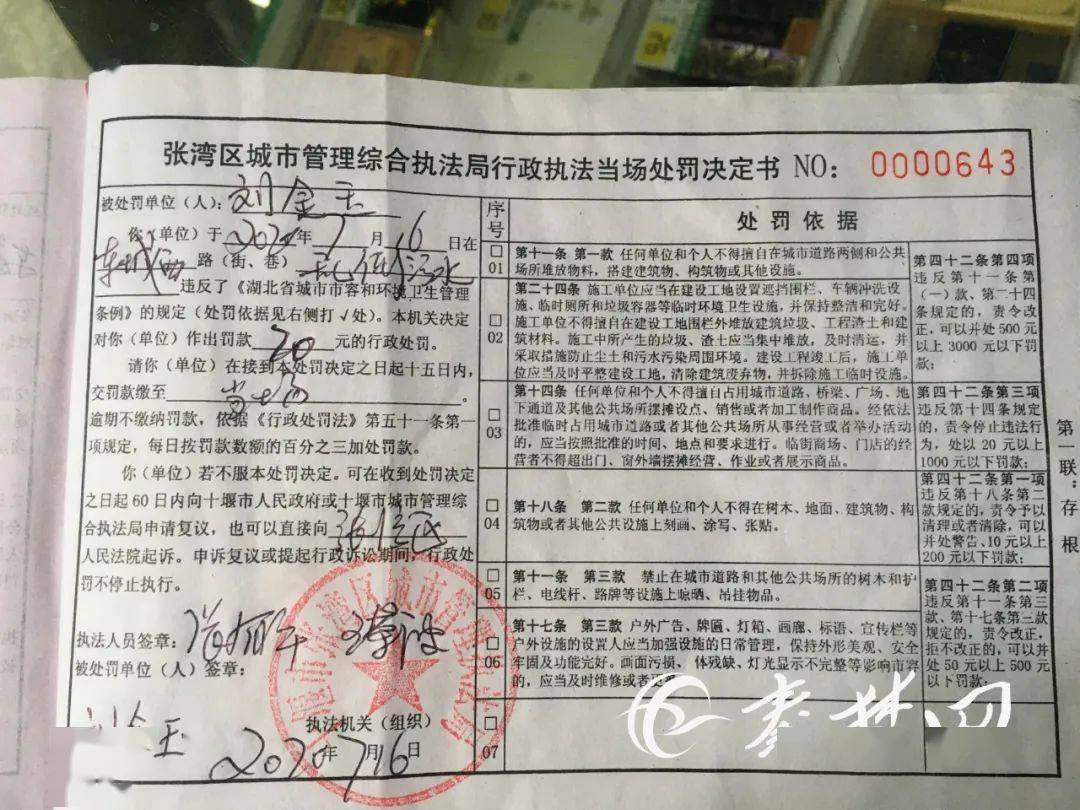 张湾区城市管理综合执法局行政执法当场处罚决定书 NO: 0000643
被处罚单位（人）：刘金玉
你（单位）于2020年7月16日在
车城西路（街、巷）乱倒污水
违反了《湖北省城市市容和环境卫生管理
条例》的规定（处罚依据见右侧打√处）。本机关决定
对你（单位）作出罚款20元的行政处罚。
请你（单位）在接到本处罚决定之日起十五日内，
交罚款缴至当场。
逾期不缴纳罚款，依据《行政处罚法》第五十一条第一
项规定，每日按罚款数额的百分之三加处罚款。
你（单位）若不服本处罚决定。可在收到处罚决定
之日起60日内向十堰市人民政府或十堰市城市管理综
合执法局申请复议，也可以直接向张湾区
人民法院起诉。申诉复议或提起行政诉讼期间，行政处
罚不停止执行。
执法人员签章：
被处罚单位（人）签章：
刘金玉
执法机关（组织）
2020年7月16日
序号
处罚依据
□01
第十一条 第一款 任何单位和个人不得擅自在城市道路两侧和公共
场所堆放物料，搭建建筑物、构筑物或其他设施。
□02
第二十四条 施工单位应当在建设工地设置遮挡围栏、车辆冲洗设
施、临时厕所和垃圾容器等临时环境卫生设施，并保持整洁和完好。
施工单位不得擅自在建设工地围栏外堆放建筑垃圾、工程渣土和建
筑材料。施工中所产生的垃圾、渣土应当集中堆放，及时清运，并
采取措施防止尘土和污水污染周围环境。建设工程竣工后，施工单
位应当及时平整建设工地，清除建筑废弃物，并拆除施工临时设施。
第四十二条第四项
违反第十一条第
（一）款、第二十四
条规定的，责令改
正，可以并处500元
以上3000元以下罚
款；
□03
第十四条 任何单位和个人不得擅自占用城市道路、桥梁、广场、地
下通道及其他公共场所摆摊设点、销售或者加工制作商品。经依法
批准临时占用城市道路或者其他公共场所从事经营或者举办活动
的，应当按照批准的时间、地点和要求进行。临街商场、门店的经
营者不得超出门、窗外墙摆摊经营、作业或者展示商品。
第四十二条第三项
违反第十四条规定
的，责令停止违法行
为，处以20元以上
1000元以下罚款；
□04
第十八条 第二款 任何单位和个人不得在树木、地面、建筑物、构
筑物或者其他公共设施上刻画、涂写、张贴。
第四十二条第一项
违反第十八条第二
款规定的，责令予以
清理或者清除，可以
并处警告、10元以上
200元以下罚款；
□05
第十一条 第三款 禁止在城市道路和其他公共场所的树木和护
栏、电线杆、路牌等设施上晾晒、吊挂物品。
□06
第十七条 第三款 户外广告、牌匾、灯箱、画廊、标语、宣传栏等
户外设施的设置人应当加强设施的日常管理，保持外形美观、安全
牢固及功能完好。画面污损、体残缺、灯光显示不完整等影响市容
的，应当及时维修或者更换。
第四十二条第二项
违反第十一条第三
款、第十七条第三款
规定的，责令改正，
拒不改正的，可以并
处50元以上500元
以下罚款；
□07
第一联：存根
秦楚网